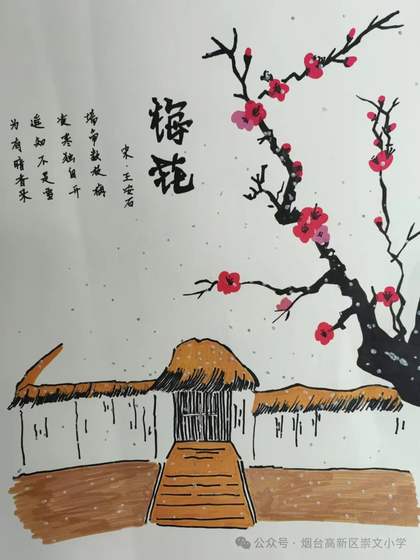 梅花
宋 王安石
墙角数枝梅
凌寒独自开
遥知不是雪
为有暗香来
公众号·烟台高新区崇文小学